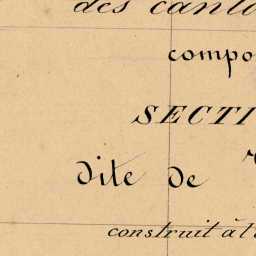 des canto
compo
SECTI
dite de
construit à l'